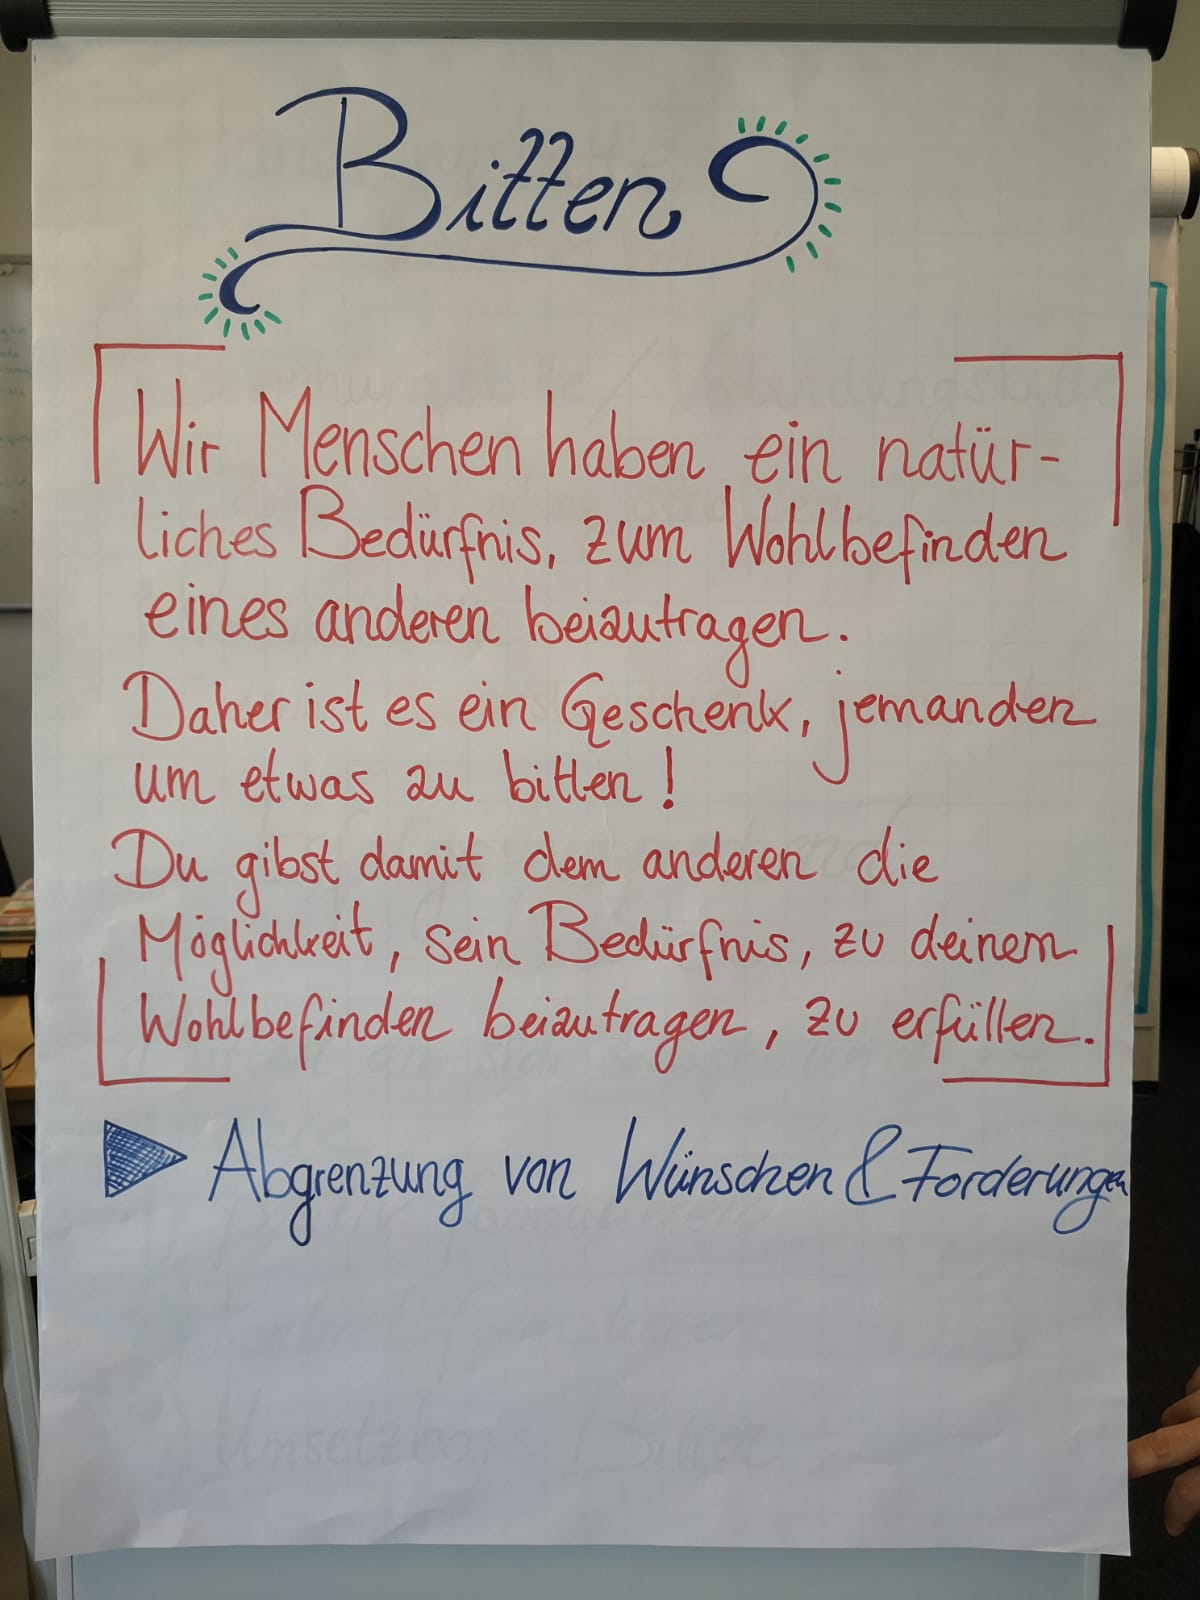 Bitten
Wir Menschen haben ein natür-
liches Bedürfnis, zum Wohlbefinden
eines anderen beizutragen.
Daher ist es ein Geschenk, jemanden
um etwas zu bitten!
Du gibst damit dem anderen die
Möglichkeit, sein Bedürfnis, zu deinem
Wohlbefinden beizutragen, zu erfüllen.
Abgrenzung von Wünschen & Forderungen
Umsetzbare Bitten